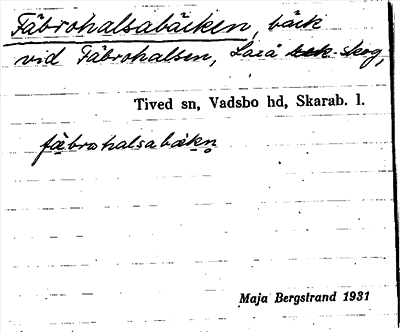 Fäbrohalsabäcken, bäck
vid Fäbrohalsen, Laxå skog,
Tived sn, Vadsbo hd, Skarab. l.
fäbrohalsabäkn̥
Maja Bergstrand 1931